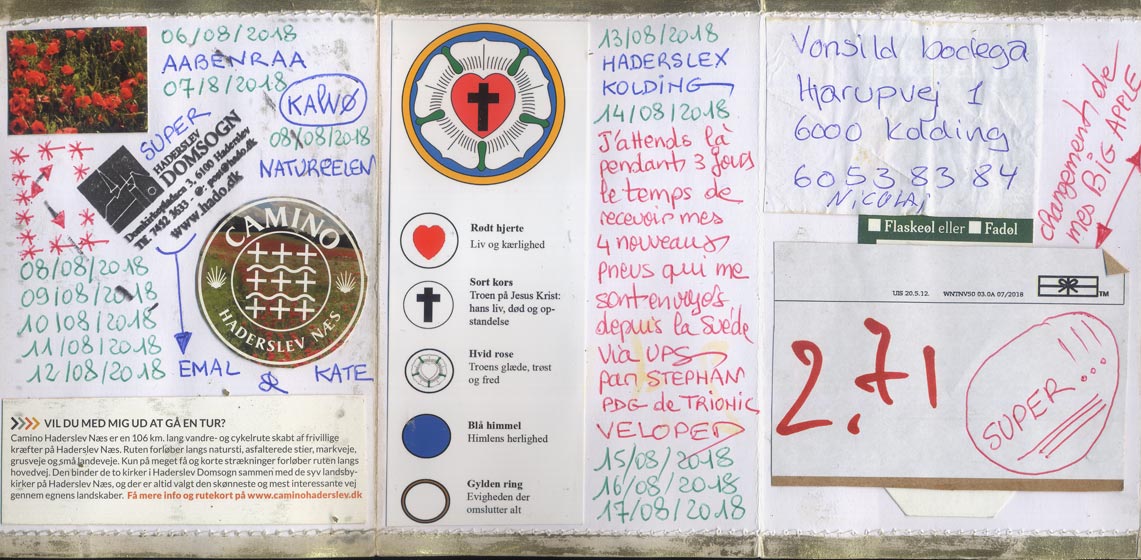 06/08/2018
AABENRAA
07/8/2018
KALVØ
SUPER
08/08/2018
NATUREELEN
HADERSLEV
DOMSOGN
Domkirkepladsen 3, 6100 Haderslev
Tlf. 7452 3633
www.hado.dk
CAMINO
HADERSLEV NÆS
08/08/2018
09/08/2018
10/08/2018
11/08/2018
12/08/2018
EMAL & KATE
VIL DU MED MIG UD AT GÅ EN TUR?
Camino Haderslev Næs er en 106 km. lang vandre- og cykelrute skabt af frivillige
kræfter på Haderslev Næs. Ruten forløber langs natursti, asfalterede stier, markveje,
grusveje og små landeveje. Kun på meget få og korte strækninger forløber ruten langs
hovedvej. Den binder de to kirker i Haderslev Domsogn sammen med de syv landsby-
kirker på Haderslev Næs, og der er altid valgt den skønneste og mest interessante vej
gennem egnens landskaber. Få mere info og rutekort på www.caminohaderslev.dk
Rødt hjerte
Liv og kærlighed
Sort kors
Troen på Jesus Krist:
hans liv, død og op-
standelse
Hvid rose
Troens glæde, trøst
og fred
Blå himmel
Himlens herlighed
Gylden ring
Evigheden der
omslutter alt
13/08/2018
HADERSLEX
KOLDING
14/08/2018
J'attends là
pendant 3 jours
le temps de
recevoir mes
4 nouveaux
pneus qui me
sont envoyés
depuis la Suède
via UPS
par STEPHAN
PDG de TRIONIC
VELOPED
15/08/2018
16/08/2018
17/08/2018
Vonsild bodega
Hjarupvej 1
6000 Kolding
60 53 83 84
NICOLAJ
Flaskeøl eller Fadøl
changement de
mes BIG APPLE
UIS 20.5.12. WNTNV50 03.0A 07/2018
TM
2.71
SUPER...!!!